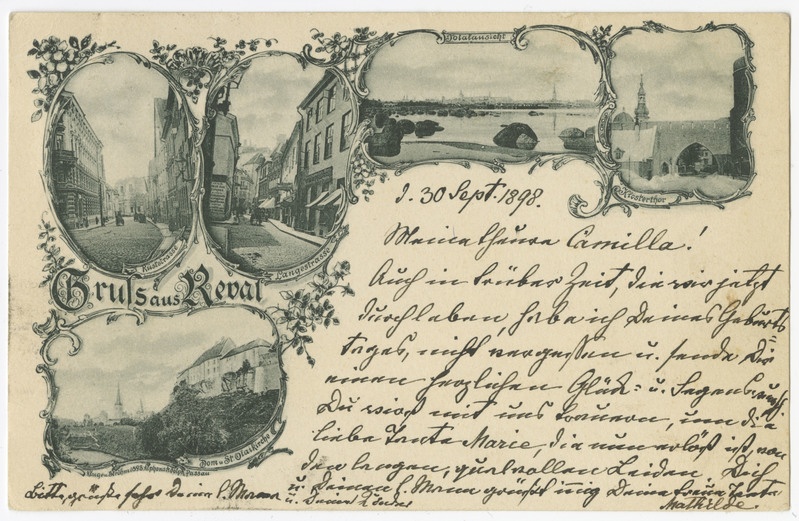 Totalansicht
Klosterthor
Langestrasse
Gruss aus Reval
Dom u. St. Olaikirche
d. 30 Sept. 1898.
Meine theure Camilla!
Auch in trüber Zeit, die wir jetzt
durchleben, habe ich Deines Geburts
tages, nicht vergessen u. sende Dir
einen herzlichen Glück- u. Segenswunsch
Du wirst mit uns trauern, um die
liebe Tante Marie, die nun erlöst ist, von
den langen, qualvollen Leiden. Dich
u. Deinen l. Mann grüßt innig Deine treue Tante
Mathilde.
Bitte, grüße sehr Deine l. Mama
u. Deine